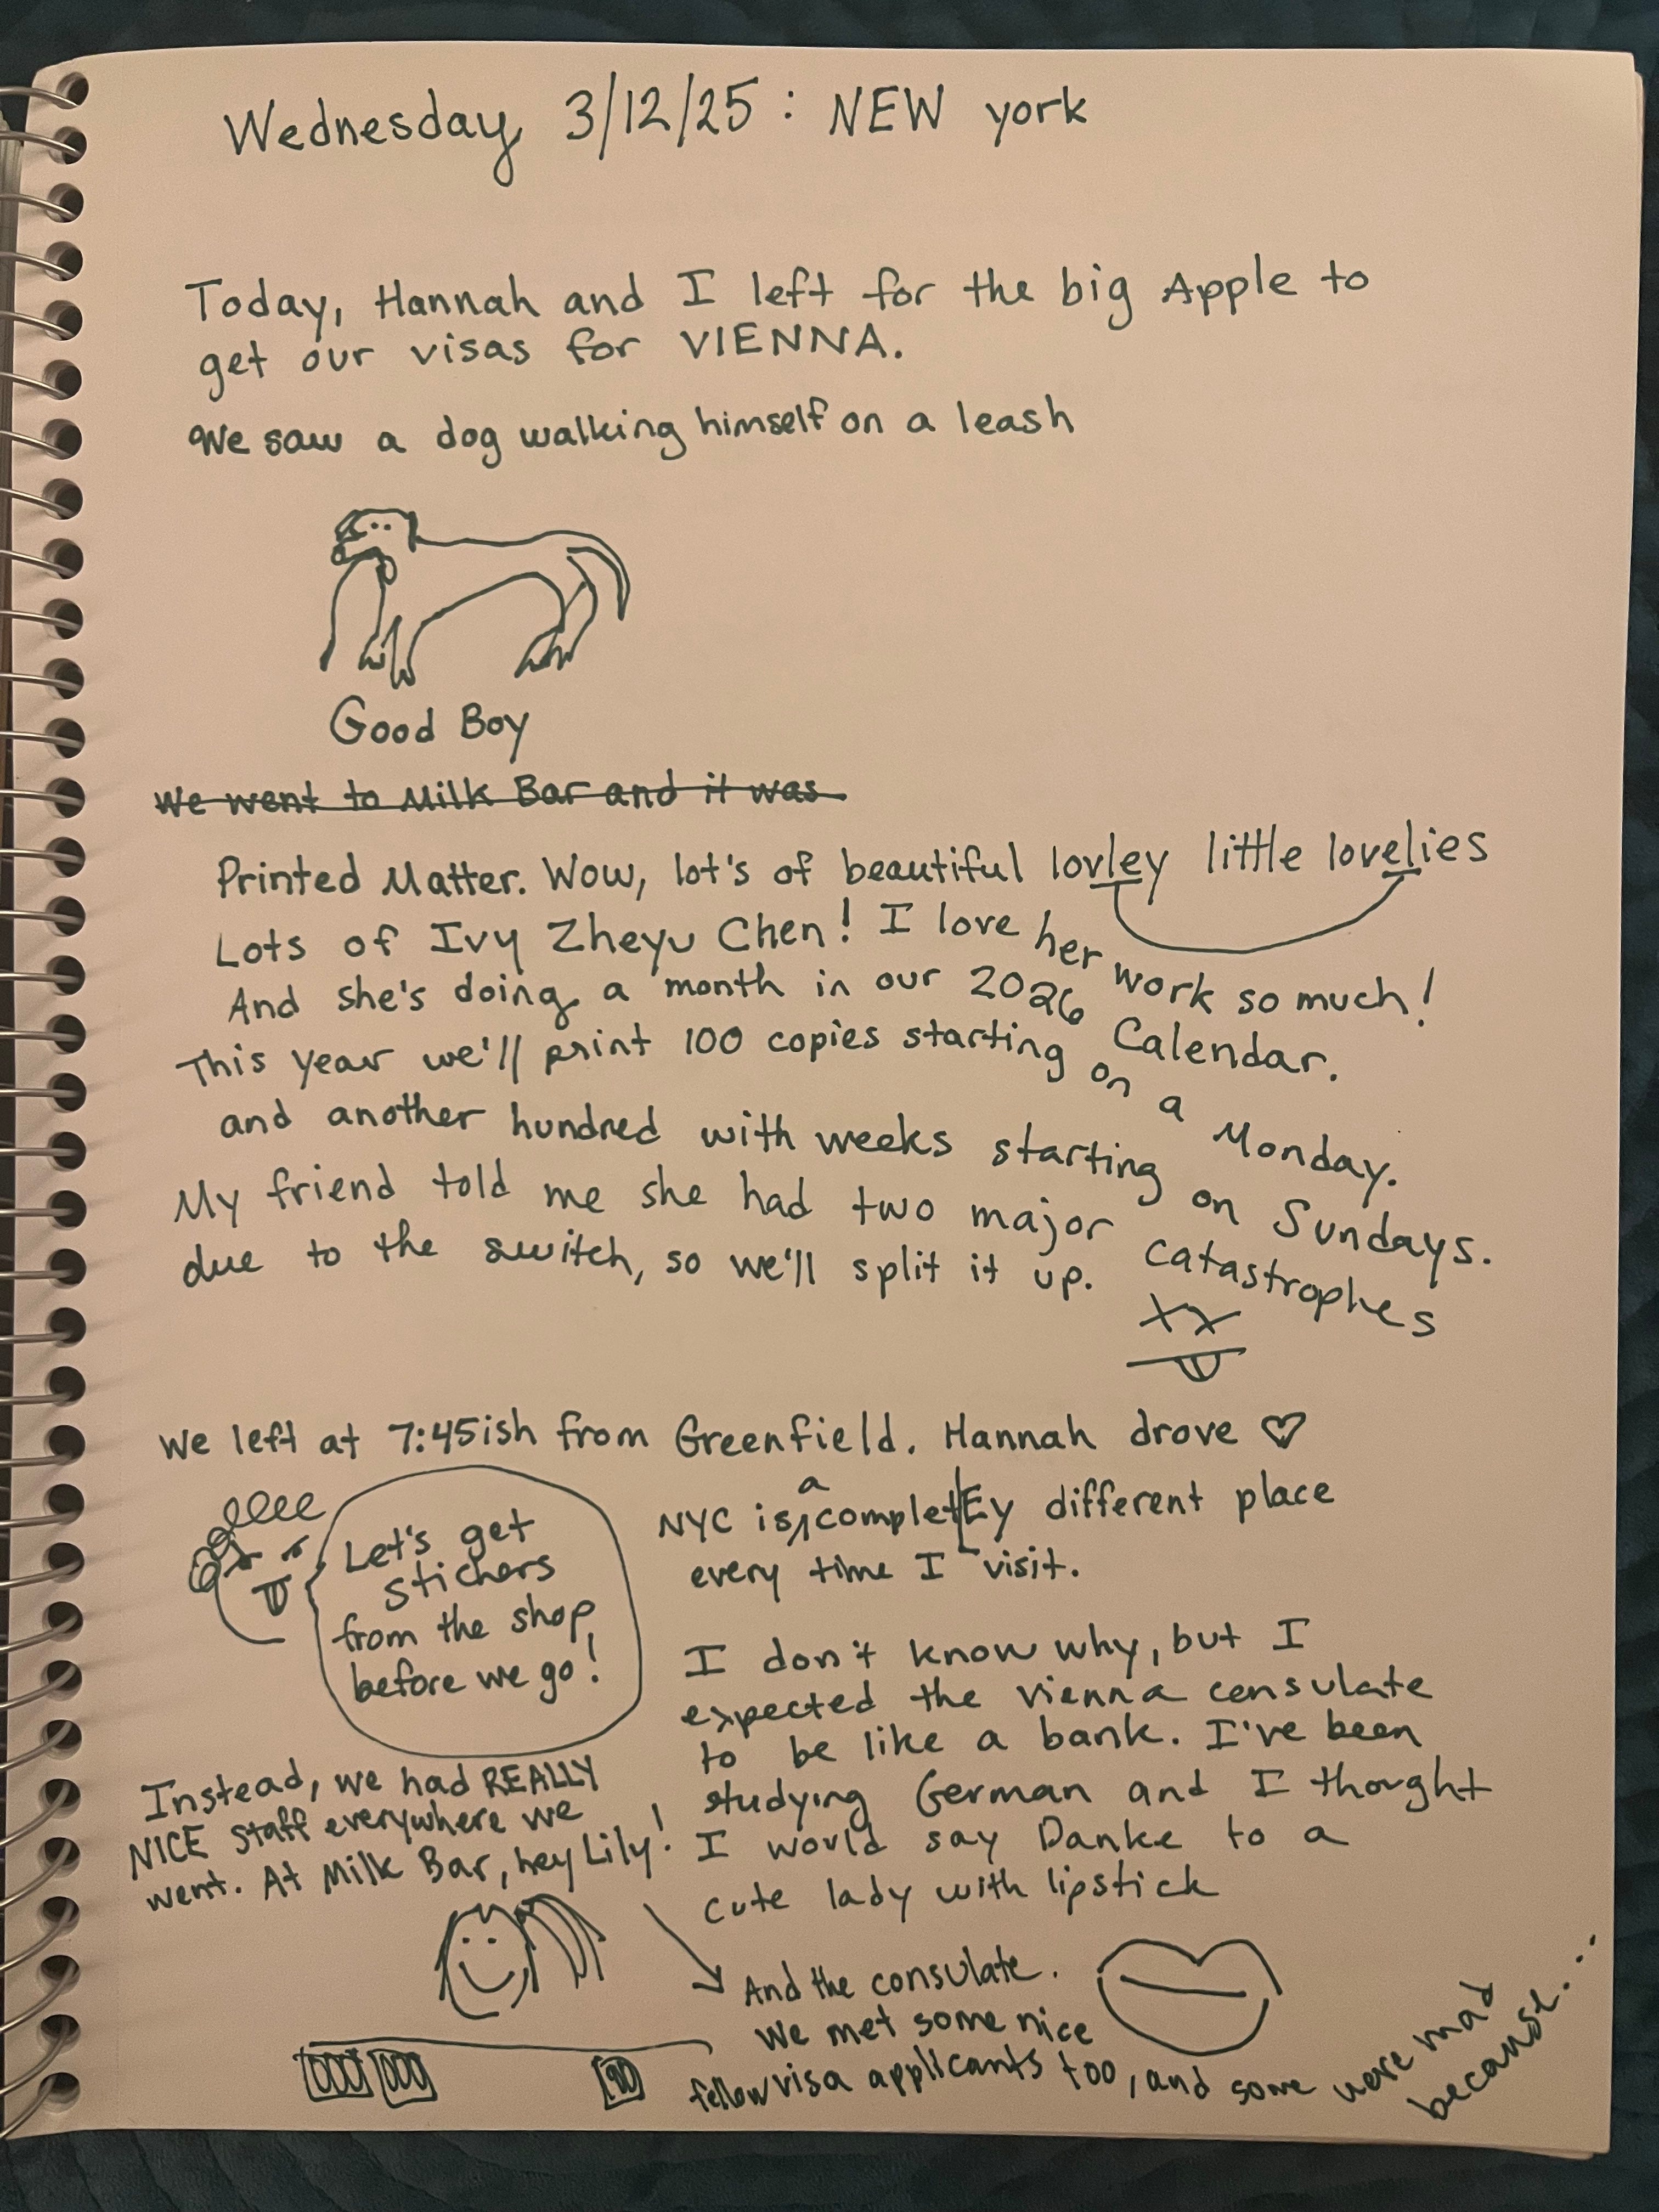 Wednesday, 3/12/25 : NEW york
Today, Hannah and I left for the big Apple to
get our visas for VIENNA.
We saw a dog walking himself on a leash
Good Boy
We went to Milk Bar and it was
Printed Matter. Wow, lot's of beautiful lovley little lovelies
Lots of Ivy Zheyu Chen! I love her work so much!
And she's doing a month in our 2026 Calendar.
This year we'll print 100 copies starting on a Monday.
and another hundred with weeks starting on Sundays.
My friend told me she had two major catastrophes
due to the switch, so we'll split it up.
We left at 7:45ish from Greenfield. Hannah drove ♡
Let's get
stickers
from the shop
before we go!
NYC is a completEy different place
every time I visit.
I don't know why, but I
expected the vienna consulate
to be like a bank. I've been
studying German and I thought
I would say Danke to a
cute lady with lipstick
Instead, we had REALLY
NICE staff everywhere we
went. At Milk Bar, hey Lily!
And the consulate.
We met some nice
fellow visa applicants too, and some were mad
because...